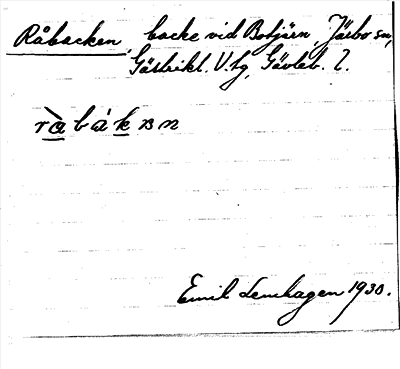 Råbacken, backe vid Botjärn, Järbo sn,
Gästrikl. V. tg, Gävleb. l.
ràbákɐn
Emil Lenhagen 1930.